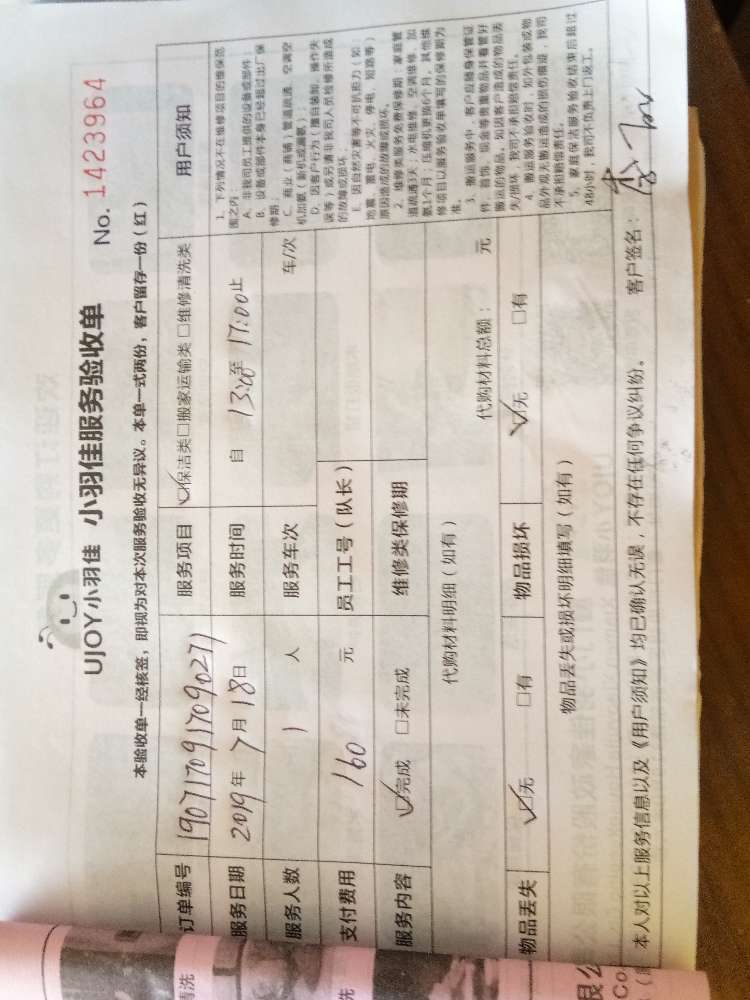 UJOY小羽佳 小羽佳服务验收单 No. 1423964
本验收单一经核签，即视为对本次服务验收无异议。本单一式两份，客户留存一份（红）
订单编号 1907170917090271 服务项目 ☑保洁类□搬家运输类 □维修清洗类 用户须知
服务日期 2019年 7月 18日 服务时间 自 13:00至 17:00止
服务人数 1 人 服务车次 车/次
支付费用 160 元 员工工号（队长）
服务内容 ☑完成 □未完成 维修类保修期
代购材料明细（如有）
代购材料总额： 元
物品丢失 ☑无 □有 物品损坏 ☑无 □有
物品丢失或损坏明细填写（如有）
1. 下列情况不在维修项目的维保范
围之内：
A. 非我司员工提供的设备或部件；
B. 设备或部件本身已经超过出厂保
修期；
C. 商业（商铺）管道疏通、空调空
机加氨（新机或漏氨）；
D. 因客户行为（擅自装卸、操作失
误等）或另请非我司人员检修所造成
的故障或损坏；
E. 因自然灾害等不可抗拒力（如：
地震、雷电、火灾、停电、短路等）
原因造成的故障或损坏。
2. 维修类服务免费保修期：家庭管
道疏通3天；水电维修、空调维修、加
氨1个月；压缩机更换6个月，其他维
修项目以服务验收单填写的保修期为
准。
3. 搬运服务中，客户应随身保管证
件、首饰、现金等贵重物品并看管好
搬运的物品。如因客户造成的物品丢
失/损坏，我司不承担赔偿责任。
4. 搬运服务验收时，如外包装或物
品外观无搬运造成的损伤痕迹，我司
不承担赔偿责任。
5. 家庭保洁服务验收结束后超过
48小时，我司不负责上门返工。
本人对以上服务信息以及《用户须知》均已确认无误，不存在任何争议纠纷。 客户签名：
清洗
洗
限公
Co.